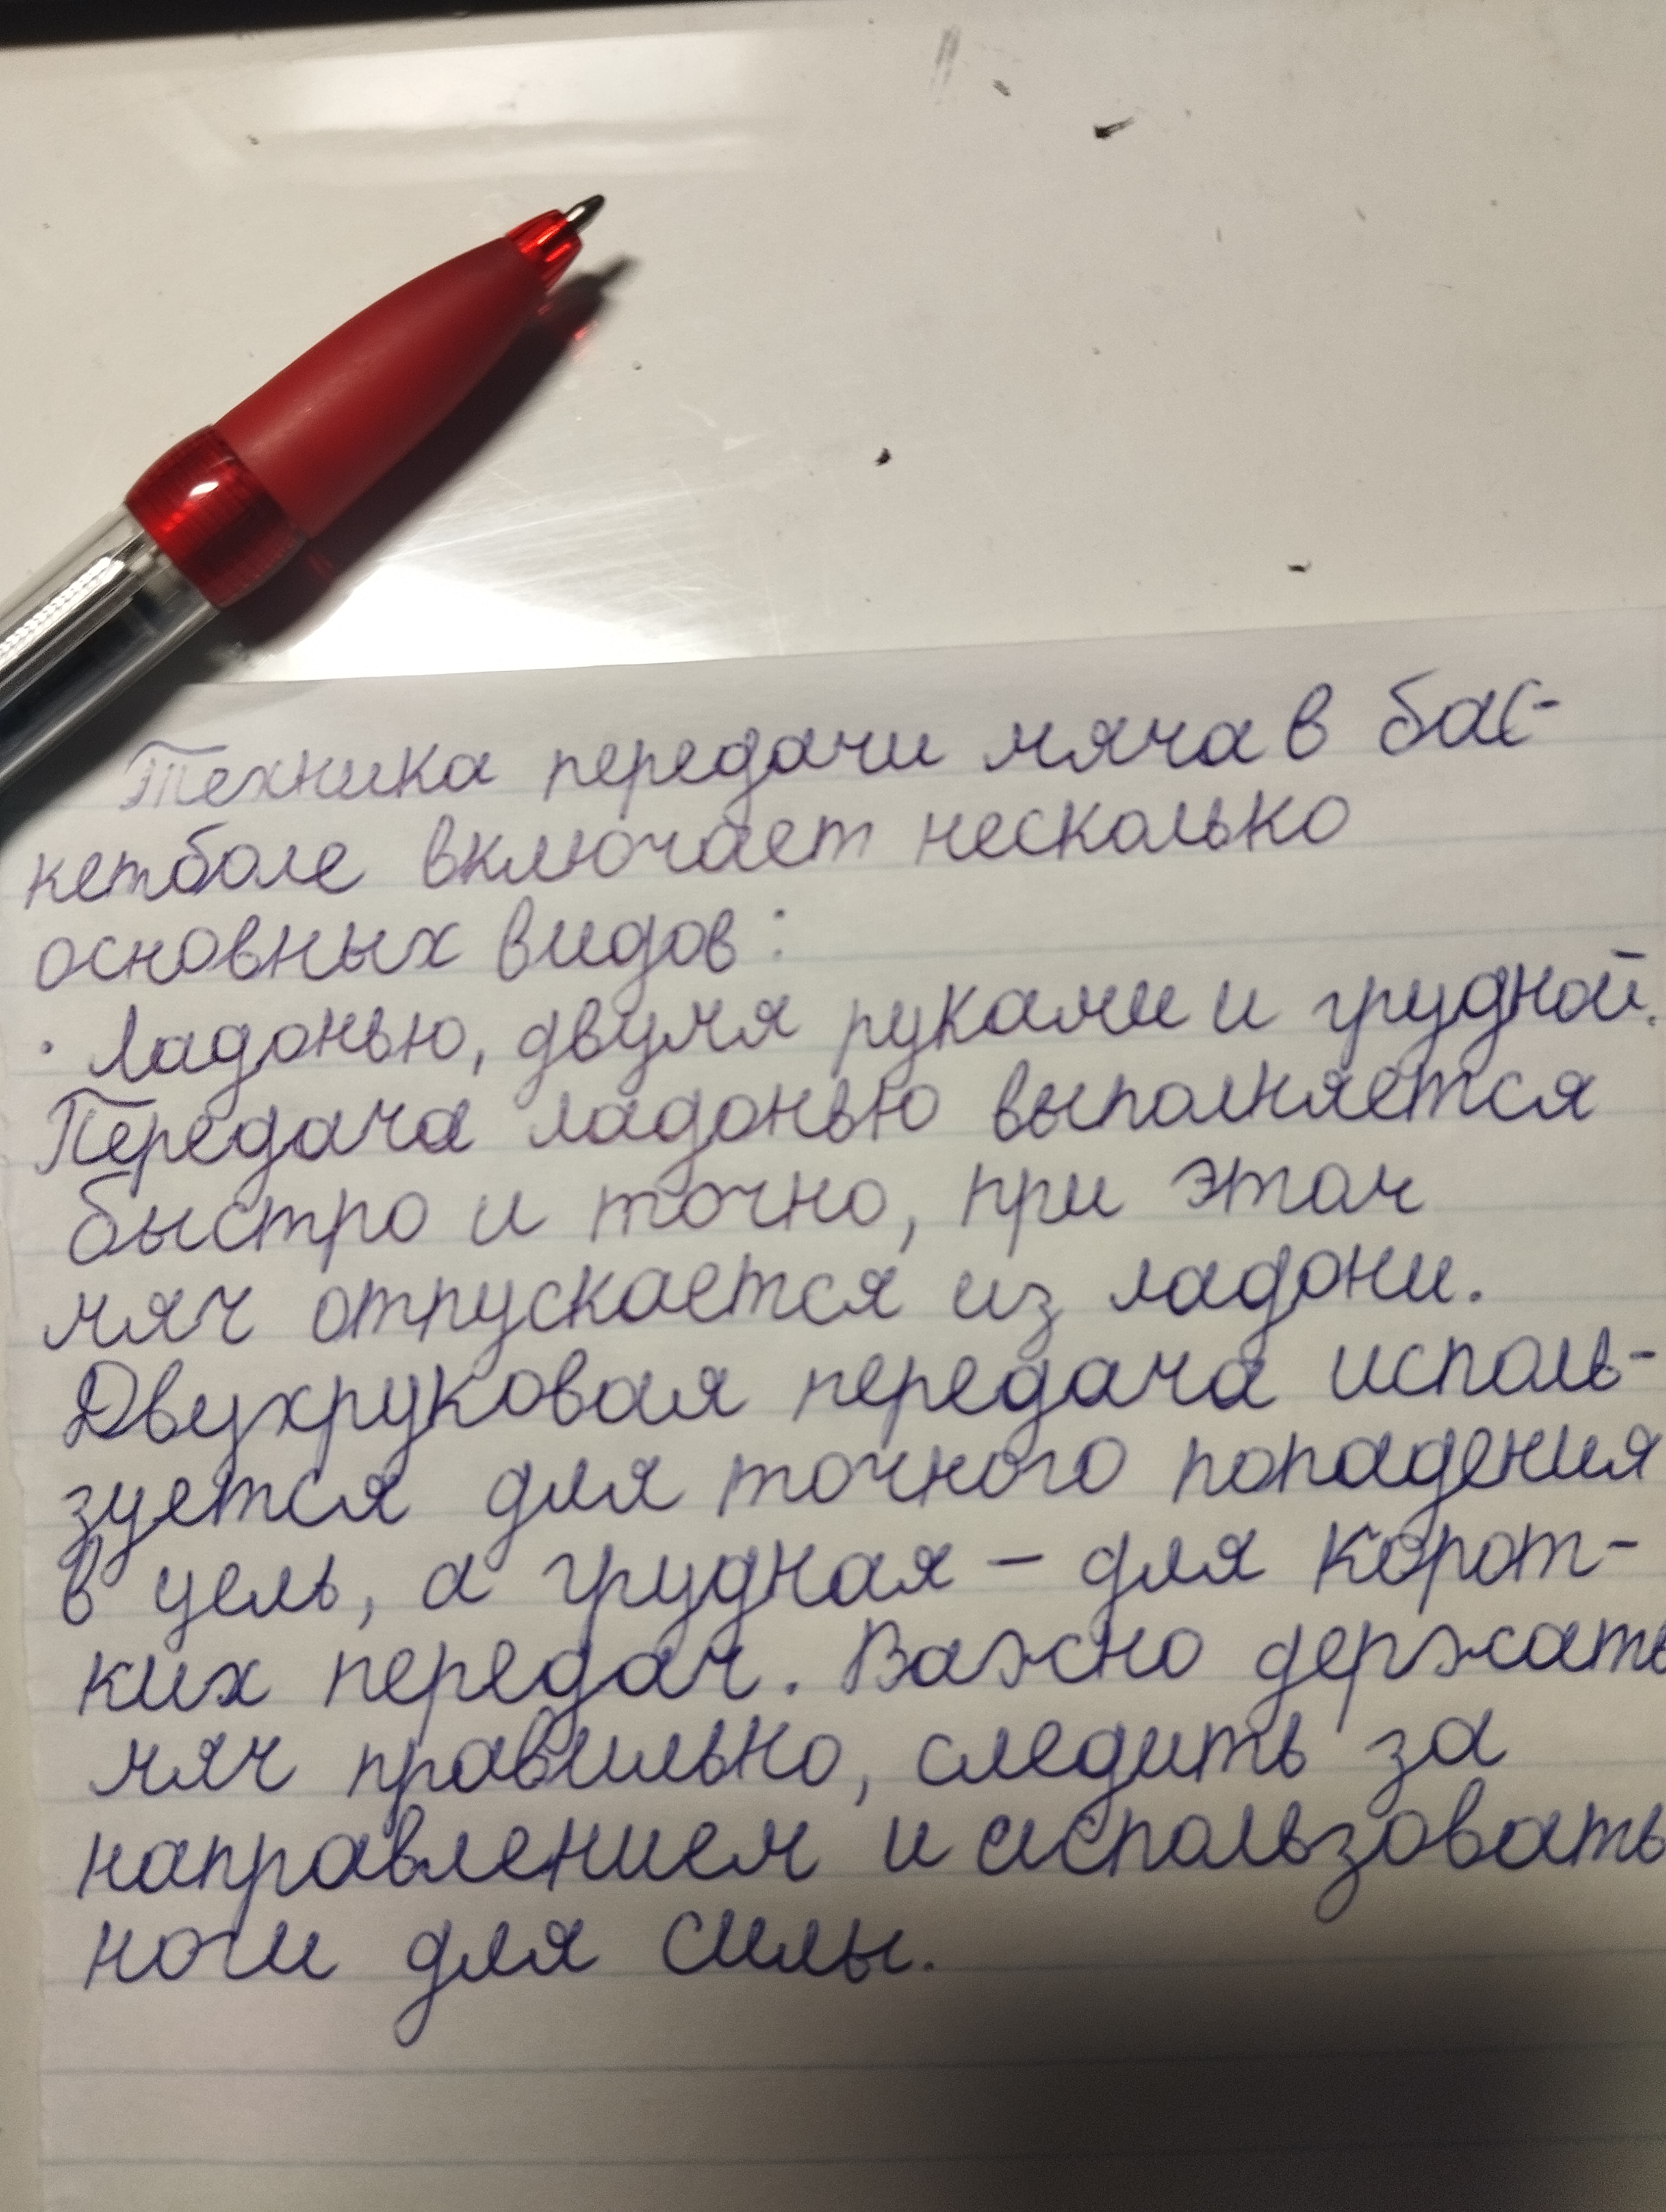 Техника передачи мяча в бас-
кетболе включает несколько
основных видов:
· Ладонью, двумя руками и грудной.
Передача ладонью выполняется
быстро и точно, при этом
мяч отпускается из ладони.
Двухруковая передача исполь-
зуется для точного попадения
в цель, а грудная – для корот-
ких передач. Важно держать
мяч правильно, следить за
направлением и использовать
ноги для силы.